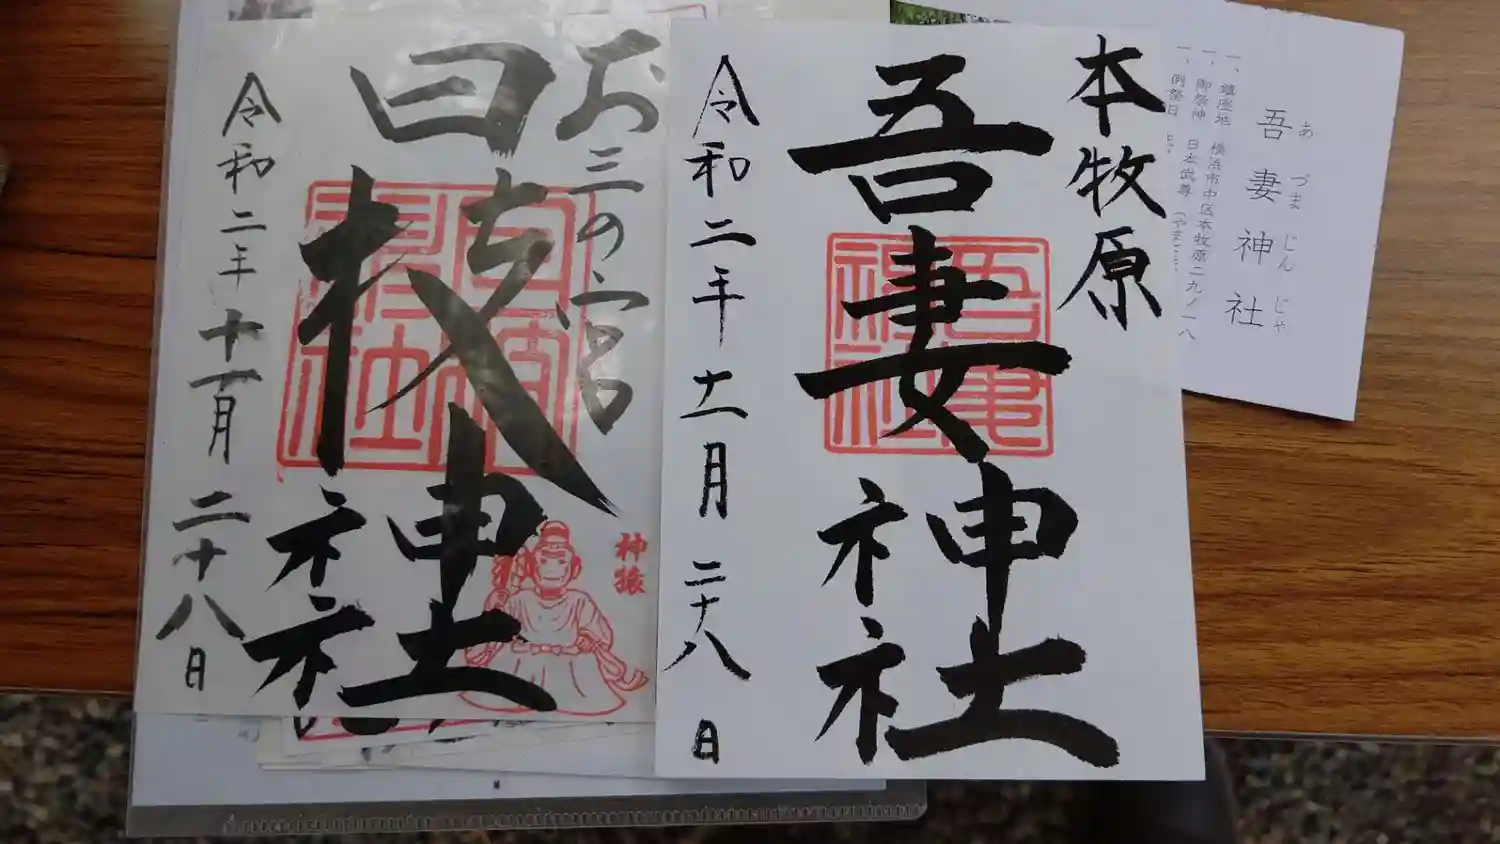 吾妻神社
あづまじんじゃ
一、鎮座地 横浜市中区本牧原二九ノ一八
一、御祭神 日本武尊
一、例祭日
本牧原
吾妻神社
令和二年十一月二十八日
お三の宮
日枝神社
神猿
令和二年十一月二十八日